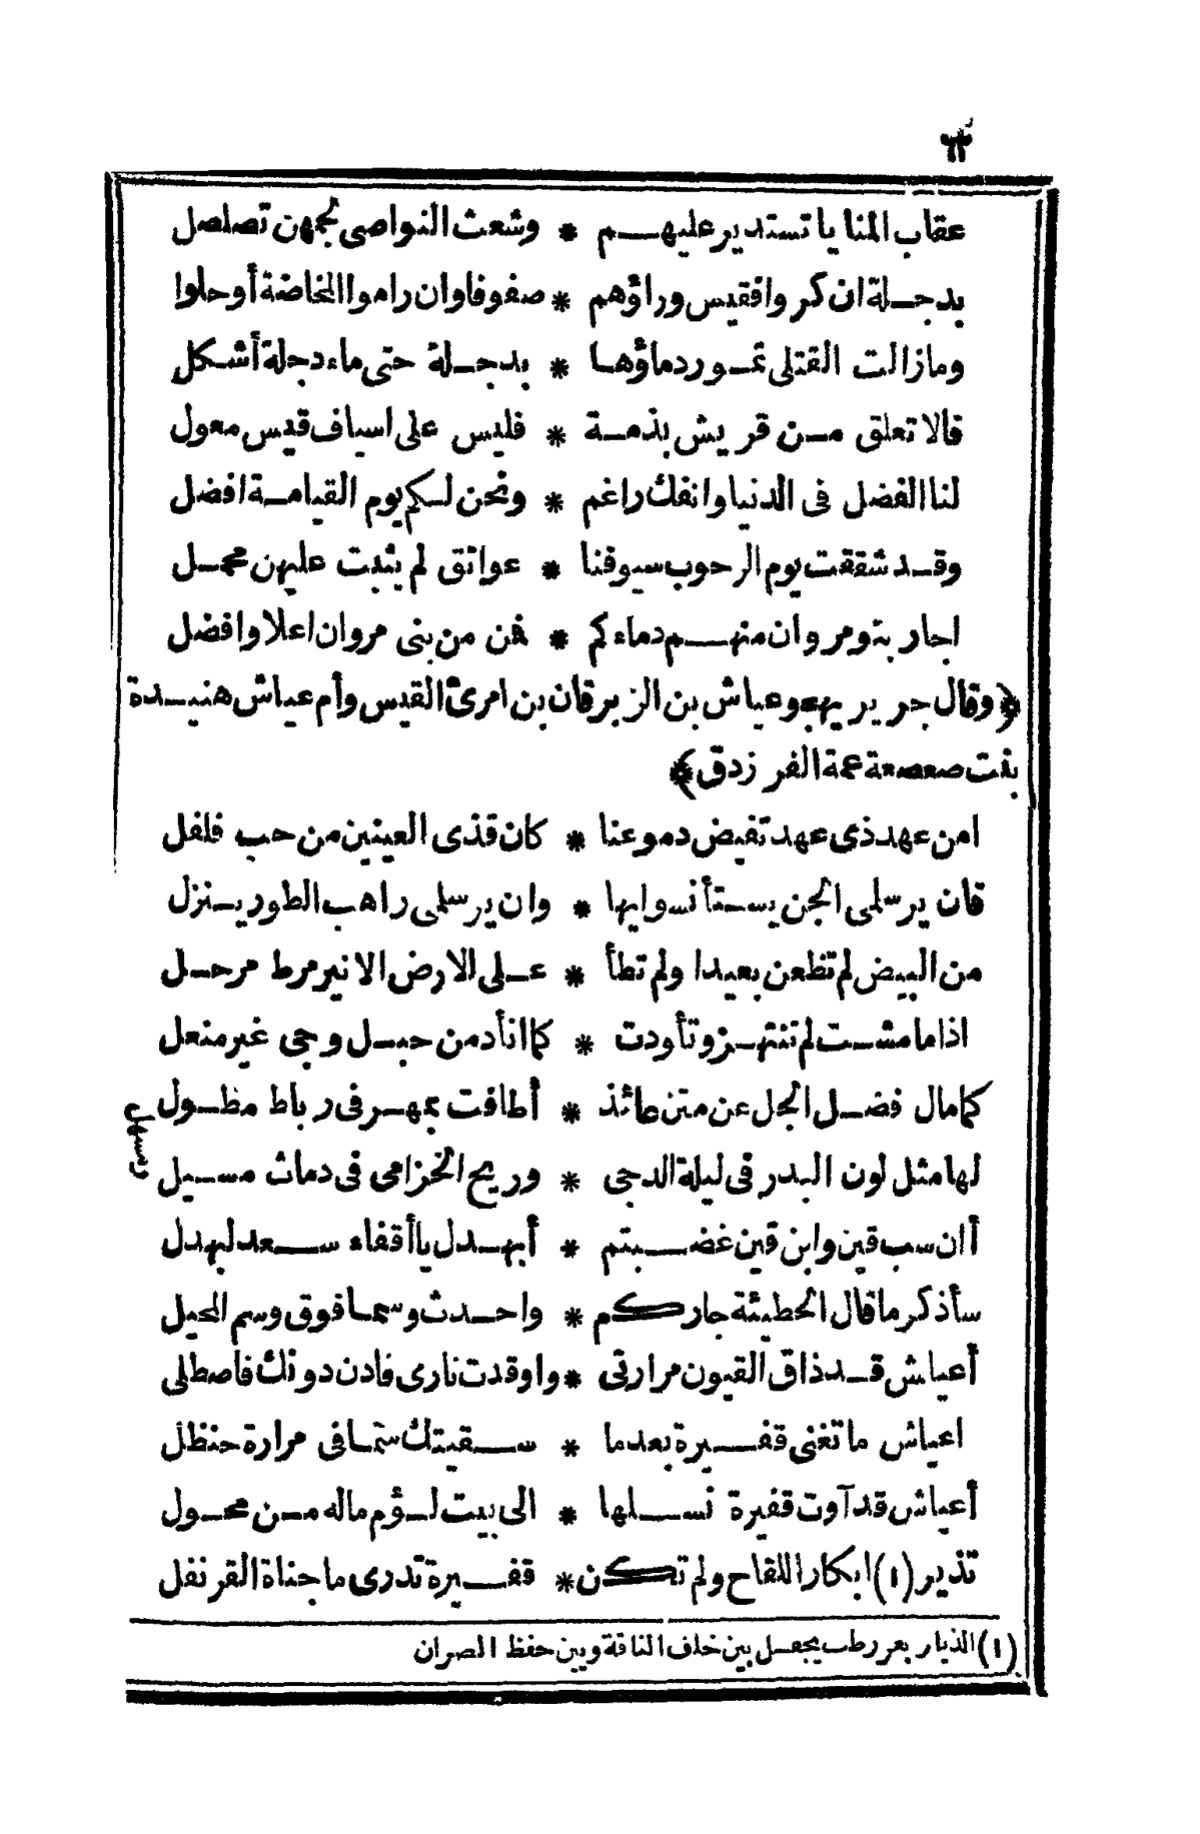 ٦٣
عقاب المنايا تستدير عليهم * وشعث النواصي لجمهن تصلصل
بدجلة ان كروا فقيس وراؤهم * صفوفا وان راموا المخاضة أوحلوا
ومازالت القتلى تمور دماؤها * بدجلة حتى ماء دجلة أشكل
فالا تعلق من قريش بذمة * فليس على اسياف قيس معول
لنا الفضل فى الدنيا وانفك راغم * ونحن لكم يوم القيامة افضل
وقد شققت يوم الرحوب سيوفنا * عواتق لم يثبت عليهن محمل
اجار بنو مروان منهم دماءكم * فمن من بنى مروان اعلا وافضل
﴿وقال جرير يهجو عياش بن الزبرقان بن امرئ القيس وأم عياش هنيدة
بنت صعصعة عمة الفرزدق﴾
امن عهد ذى عهد تفيض دموعنا * كان قذى العينين من حب فلفل
فان يرسلمى الجن يستأنسوا بها * وان يرسلمى راهب الطور ينزل
من البيض لم تظعن بعيدا ولم تطأ * على الارض الا نير مرط مرحل
اذا ما مشت لم تنتهز وتأودت * كما انأد من خيل وجى غير منعل
كما مال فضل الجل عن متن عائذ * أطافت بمهر فى رباط مطول
لها مثل لون البدر فى ليلة الدجى * وريح الخزامى فى دماث مسيل
أان سب قين وابن قين غضبتم * أبهدل يا أفناء سعد لبهدل
سأذكر ما قال الحطيئة جاركم * واحدث وسما فوق وسم المخبل
أعياش قد ذاق القيون مرارتى * واوقدت نارى فادن دونك فاصطلى
اعياش ما تغنى قفيرة بعدما * سقيتك سما فى مرارة حنظل
أعياش قد آوت قفيرة نسلها * الى بيت لؤم ماله من محول
تذير (١) ابكار اللقاح ولم تكن * قفيرة تدرى ما جناة القرنفل
(١) الذيار بعر رطب يجعل بين خلف الناقة وبين حفظ الصران